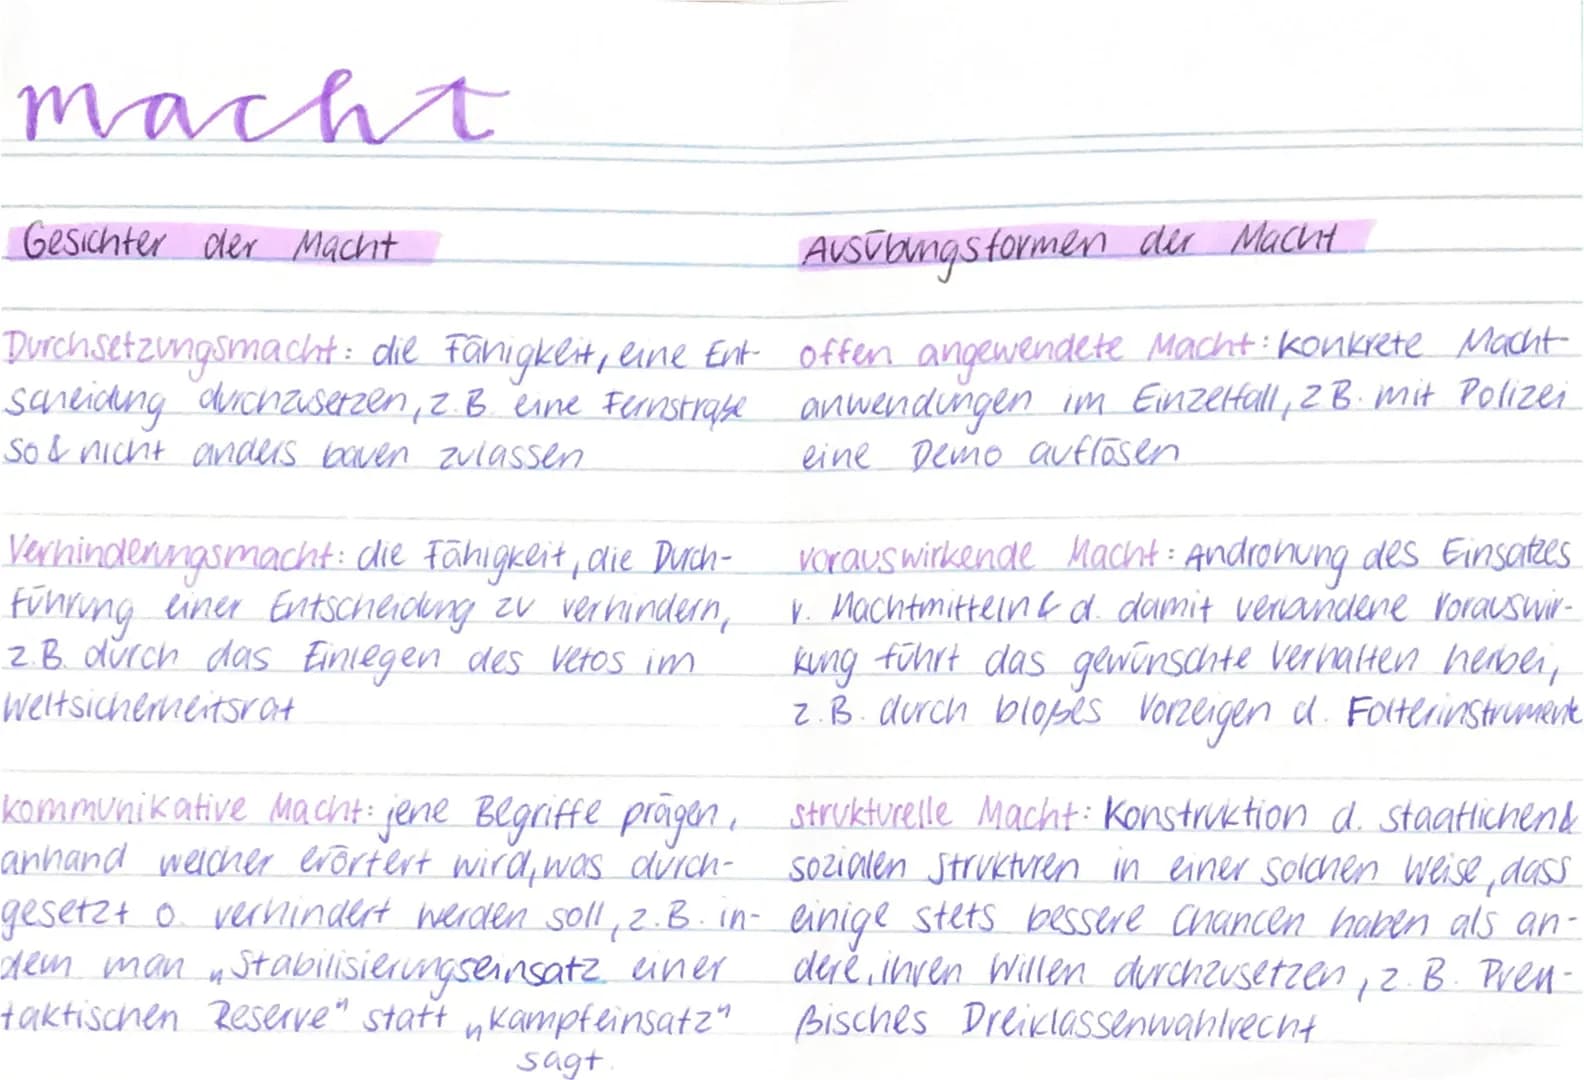 macht
Gesichter der Macht
Durchsetzungsmacht: die Fähigkeit, eine Ent-
scheidung durchzusetzen, z.B. eine Fernstraße
so & nicht anders bauen zulassen
Verhinderungsmacht: die Fähigkeit, die Durch-
führung einer Entscheidung zu verhindern,
z.B. durch das Einlegen des Vetos im
Weltsicherheitsrat
kommunikative Macht: jene Begriffe prägen,
anhand welcher erörtert wird, was durch-
gesetzt o. verhindert werden soll, z.B. in-
dem man „Stabilisierungseinsatz einer
taktischen Reserve“ statt „Kampfeinsatz“
sagt.
Ausübungsformen der Macht
offen angewendete Macht: konkrete Macht-
anwendungen im Einzelfall, z B. mit Polizei
eine Demo auflösen
vorauswirkende Macht: Androhung des Einsatzes
v. Machtmitteln & d. damit verbundene Vorauswir-
kung führt das gewünschte Verhalten herbei,
z.B. durch bloßes Vorzeigen d. Folterinstrumente
strukturelle Macht: Konstruktion d. staatlichen &
sozialen Strukturen in einer solchen Weise, dass
einige stets bessere Chancen haben als an-
dere, ihren Willen durchzusetzen, z.B. Preu-
ßisches Dreiklassenwahlrecht